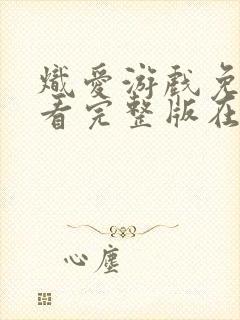 熾愛游戲免
看完整版在
心塵